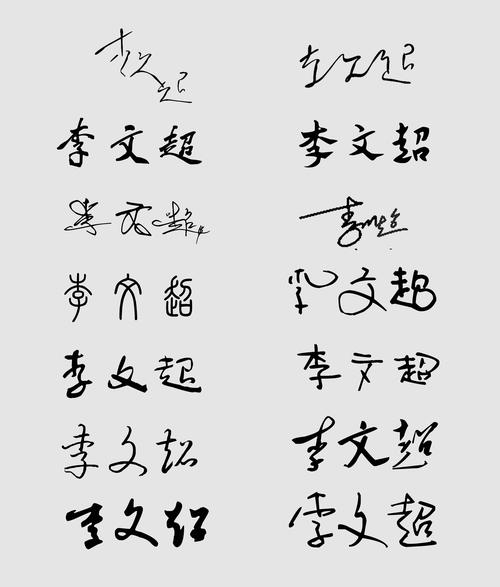 李文超 李文超
李文超 李文超
李文超 李文超
李文超 李文超
李文超 李文超
李文超 李文超
李文超 李文超